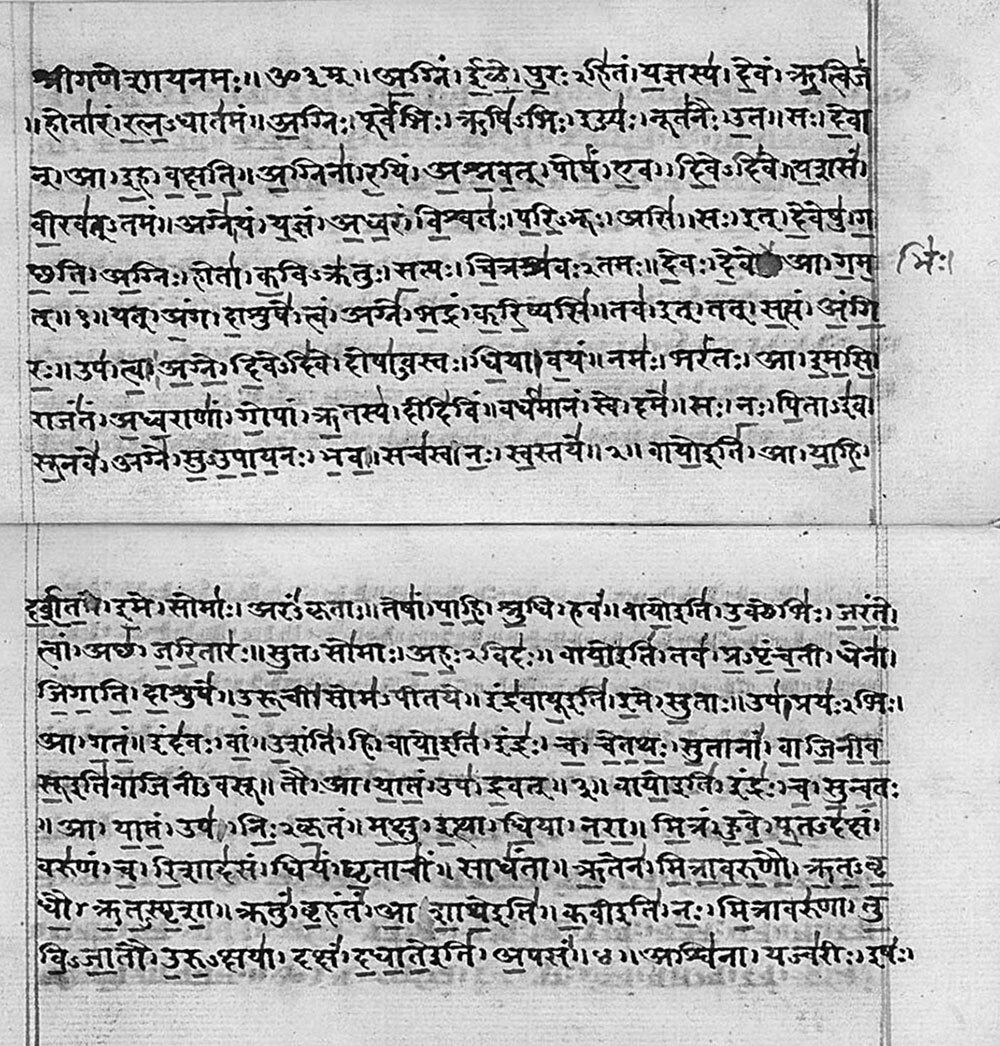 श्रीगणेशायनमः॥ॐ३म्॥अ॒ग्निं।ई॒ळे॒।पु॒रःऽहि॑तं।य॒ज्ञस्य॑।दे॒वं।ऋ॒त्विजं॑
॥होता॑रं।र॒त्न॒ऽधात॑मं॥अ॒ग्निः।पूर्वे॑भिः।ऋषि॑ऽभिः।ईड्यः॑।नूत॑नैः।उ॒त॥सः।दे॒वा
न्।आ।इ॒ह।व॒क्ष॒ति॒॥अ॒ग्निना॑।र॒यिं।अ॒श्न॒व॒त्।पोषं॑।ए॒व।दि॒वेऽदि॑वे॥य॒शसं॑
वी॒रव॑त्ऽतमं॥अग्ने॑।यं।य॒ज्ञं।अ॒ध्व॒रं।वि॒श्वतः॑।प॒रि॒ऽभूः।असि॑॥सः।इत्।दे॒वेषु॑।ग॒
छ॒ति॒।अ॒ग्निः।होता॑।क॒विऽक्र॑तुः।स॒त्यः।चि॒त्रश्र॑वःऽतमः॥दे॒वः।दे॒वे आ।ग॒म॒
भिः॑।
त्॥१॥यत्।अं॒ग।दा॒शुषे॑।त्वं।अग्ने॑।भ॒द्रं।क॒रि॒ष्यसि॑॥तव॑।इत्।तत्।स॒त्यं।अं॒गि॒
रः॒॥उप॑।त्वा॒।अ॒ग्ने॒।दि॒वेऽदि॑वे।दोषा॑ऽवस्तः।धि॒या।व॒यं॥नमः॑।भरं॑तः।आ।इ॒म॒सि॒
राजं॑तं।अ॒ध्व॒राणां॑।गो॒पां।ऋ॒तस्य॑।दीदि॑विं॥वर्ध॑मानं।स्वे।दमे॑॥सः।नः॒।पि॒ताऽइ॑व।
सू॒नवे॑।अग्ने॑।सु॒ऽउ॒पा॒य॒नः।भ॒व॒॥सच॑स्व।नः॒।स्व॒स्तये॑॥२॥वायो॒इति॑।आ।या॒हि॒।
द॒र्श॒त॒।इ॒मे।सोमाः॑।अरं॑ऽकृताः॥तेषां॑।पा॒हि॒।श्रु॒धि।हवं॑॥वायो॒इति॑।उ॒क्थेभिः॑।ज॒रं॒ते॒
त्वां।अच्छ॑।ज॒रि॒तारः॑॥सु॒तऽसो॑माः।अ॒हः॒ऽविदः॑॥वायो॒इति॑।तव॑।प्र॒ऽपृं॒च॒ती।धेना॑।
जि॒गा॒ति॒।दा॒शुषे॑॥उ॒रू॒ची।सोम॑ऽपीतये॥इंद्र॑वायू॒इति॑।इ॒मे।सु॒ताः॥उप॑।प्रयः॑ऽभिः।
आ।ग॒तं॒॥इंद॑वः।वां॒।उ॒शंति॑।हि।वायो॒इति॑।इंद्रः॑।च॒।चे॒त॒थः॒।सु॒तानां॑।वा॒जि॒नी॒व॒
सू॒इति॑वाजिनीऽवसू॥तौ।आ।या॒तं॒।उप॑।द्र॒वत्॥३॥वायो॒इति॑।इंद्रः॑।च॒।सु॒न्व॒तः
॥आ।या॒तं॒।उप॑।निः॒ऽकृ॒तं॥म॒क्षु।इ॒त्था।धि॒या।न॒रा॥मि॒त्रं।हु॒वे॒।पू॒तऽद॑क्षं।
वरु॑णं।च॒।रि॒शाद॑सं।धियं॑।घृ॒ताचीं॑॥साधं॑ता॥ऋ॒तेन॑।मि॒त्रा॒व॒रु॒णौ॒।ऋ॒त॒ऽवृ॒
धौ॒।ऋ॒त॒ऽस्पृ॒शा॒॥क्रतुं॑।बृ॒हंतं॑।आ॒शा॒थे॒इति॑।क॒वीइति॑।नः॒।मि॒त्रावरु॑णा।तु॒
वि॒ऽजा॒तौ।उ॒रु॒ऽक्षया॑।दक्षं॑।द॒धा॒ते॒इति॑।अ॒पसं॑॥४॥अश्वि॑ना।यज्व॑रीः।इषः॑।